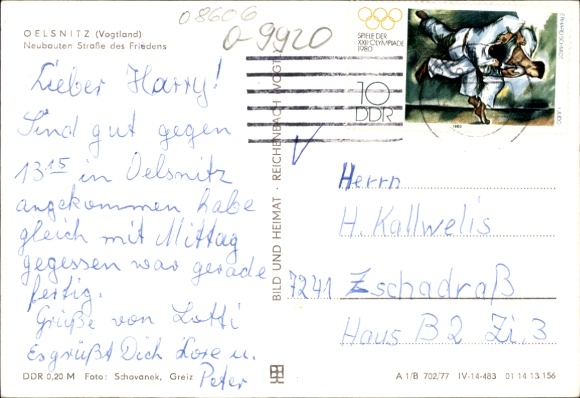 08606
0-9920
OELSNITZ (Vogtland)
Neubauten Straße des Friedens
SPIELE DER
XXII. OLYMPIADE
1980
10
DDR
1980
Lieber Harry!
Sind gut gegen
13 15 in Oelsnitz
angekommen habe
gleich mit Mittag
gegessen war gerade
fertig.
Grüße von Lotti
Es grüßt Dich Lore u.
Peter
BILD UND HEIMAT · REICHENBACH VOGTL
Herrn
H. Kallwelis
7241 Zschadraß
Haus B 2 Zi. 3
DDR 0,20 M Foto: Schovanek, Greiz
A 1/B 702/77 IV-14-483 01 14 13 156